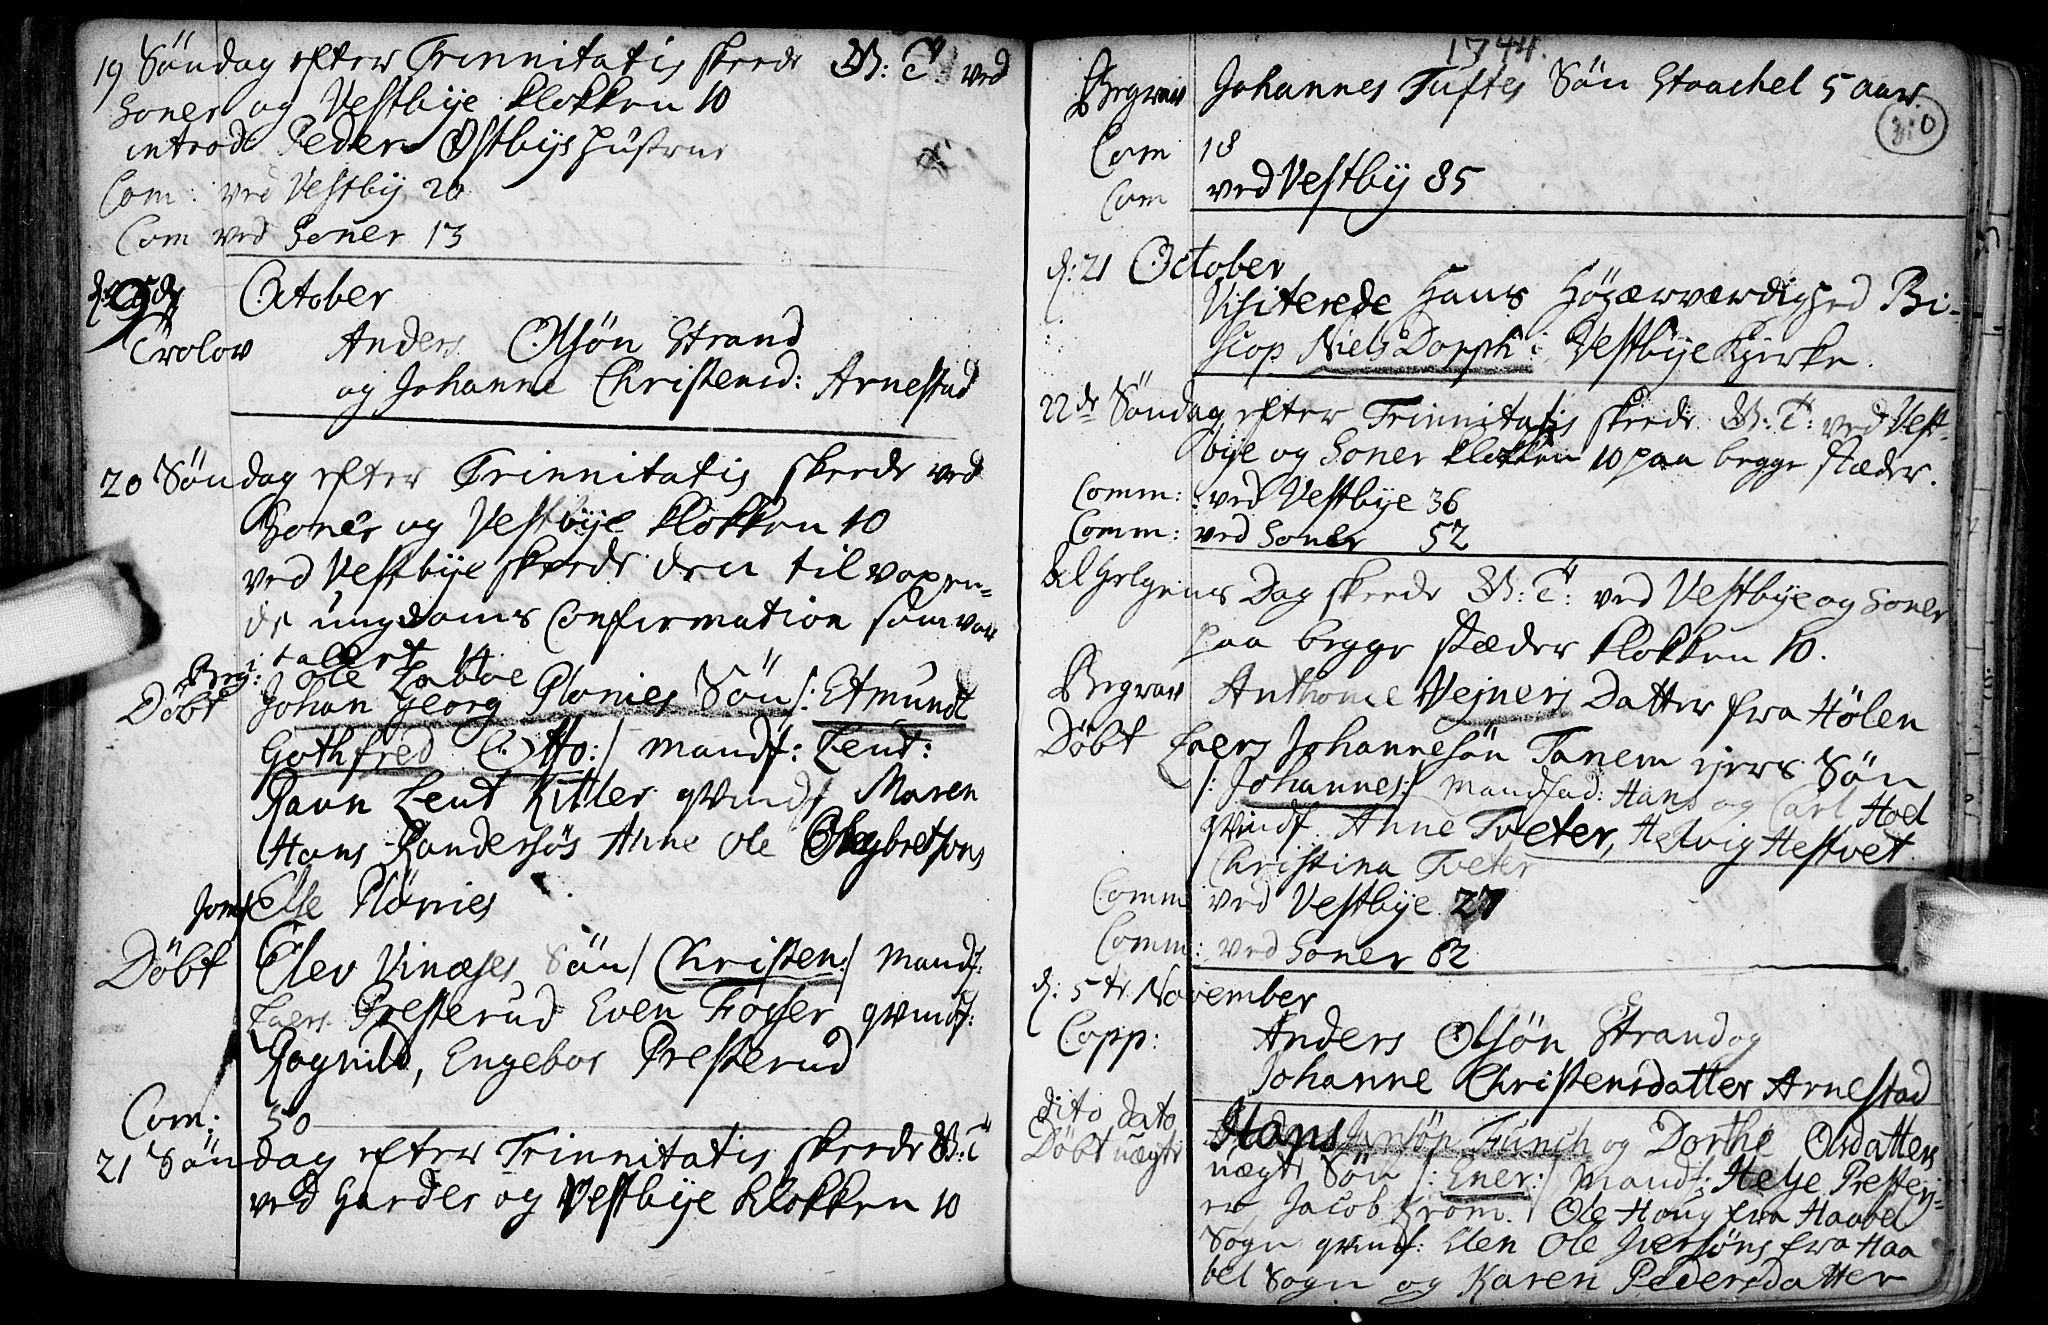 19 Söndag efter Trinnitatis skeede G: T: ved
Soner og Vestbye klokken 10
introd: Peder Østbys Hustrue
Com: ved Vestby 20
Com ved Soner 13
October
Trolov Anders Olsön Strand
og Johanne Christensd: Arnestad
20 Söndag efter Trinnitatis skeede ved
Soner og Vestbye klokken 10
ved Vestbye skeede den til voxen=
de ungdoms Confirmation som var
i talert 14
Beg: Ole Laboe
Döbt Johan Georg Plonies Sön /: Etmundt
Gothfred Otto :/ mandf: Leut:
Ravn Leut Kitler qvindf Maren
Hans Randersös Anne Ole Engebretsöns
Jomf Else Plönies
Döbt Elev Vinæses Sön /: Christen :/ mandf:
Laers Presterud Even Fosser qvindf:
Rognild, Engebor Presterud
Com: 50
21 Söndag efter Trinnitatis skeede G: T:
ved Garder og Vestbye klokken 10
1744.
310
Begrav Johannes Tuftes Sön Staachel 5 aar.
Com 18
Com ved Vestbÿ 85
d: 21 October
Visiterede Hans Högærværdighed Bi-
scop Niels Dorph i Vestbye Kjirke.
22de Söndag efter Trinnitatis skeede G: T: ved Vest-
bye og Soner klokken 10 paa begge stæder.
Comm: ved Vestbye 36
Comm: ved Soner 52
Al Helgens Dag skeede G: T: ved Vestbye og Soner
paa begge stæder klokken 10.
Begrav Anthonie Vejners Datter fra Hölen
Döbt Laers Johannesön Tanem ejers Sön
/: Johannes :/ Mandfad: Hans og Carl Hoel
qvindf. Anne Tveter, Helvig Hestvet
Christina Tveter
Comm ved Vestbye 27
Comm: ved Soner 82
d: 5te November
Copp: Anders Olsön Strand og
Johanne Christensdatter Arnestad
dito dato
Döbt uægte Hans Jensön Funch og Dorthe Olsdatters
uægte Sön /: Ener :/ Mandf: Helje Presterj-
er Jacob Krom. Ole Haug fra Haabel
Sogn qvindf: Elen Ole Iversöns fra Haa
bel Sogn og Karen Pedersdatter